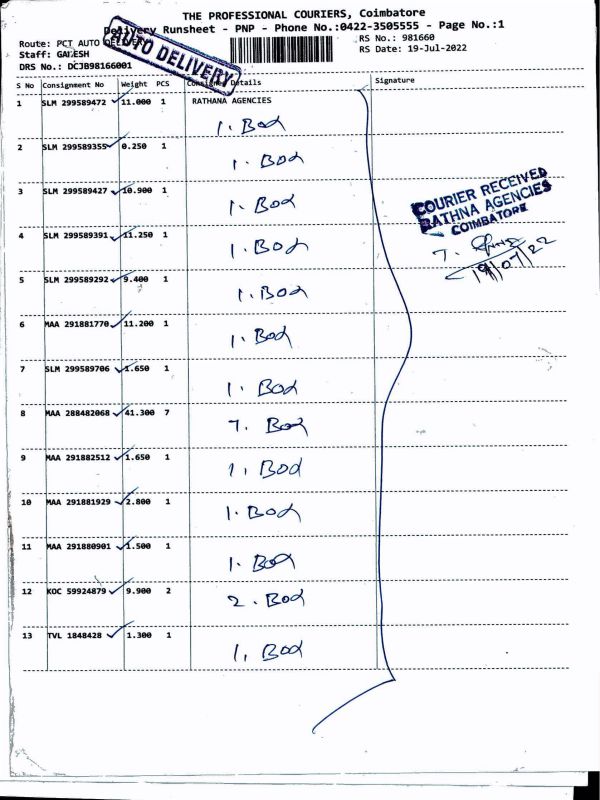 THE PROFESSIONAL COURIERS, Coimbatore
Delivery Runsheet - PNP - Phone No.:0422-3505555 - Page No.:1
Route: PCT AUTO DELIVERY
RS No.: 981660
Staff: GANESH
RS Date: 19-Jul-2022
DRS No.: DCJB98166001
AUTO DELIVERY
S No Consignment No Weight PCS Consignee Details Signature
1 SLM 299589472 11.000 1 RATHANA AGENCIES
1. Bod
2 SLM 299589355 0.250 1
1. Bod
3 SLM 299589427 10.900 1
1. Bod
COURIER RECEIVED
RATHNA AGENCIES
COIMBATORE
4 SLM 299589391 11.250 1
1. Bod
7.
19/07/22
5 SLM 299589292 9.400 1
1. Bod
6 MAA 291881770 11.200 1
1. Bod
7 SLM 299589706 1.650 1
1. Bod
8 MAA 288482068 41.300 7
7. Bod
9 MAA 291882512 1.650 1
1. Bod
10 MAA 291881929 2.800 1
1. Bod
11 MAA 291880901 1.500 1
1. Bod
12 KOC 59924879 9.900 2
2. Bod
13 TVL 1848428 1.300 1
1. Bod